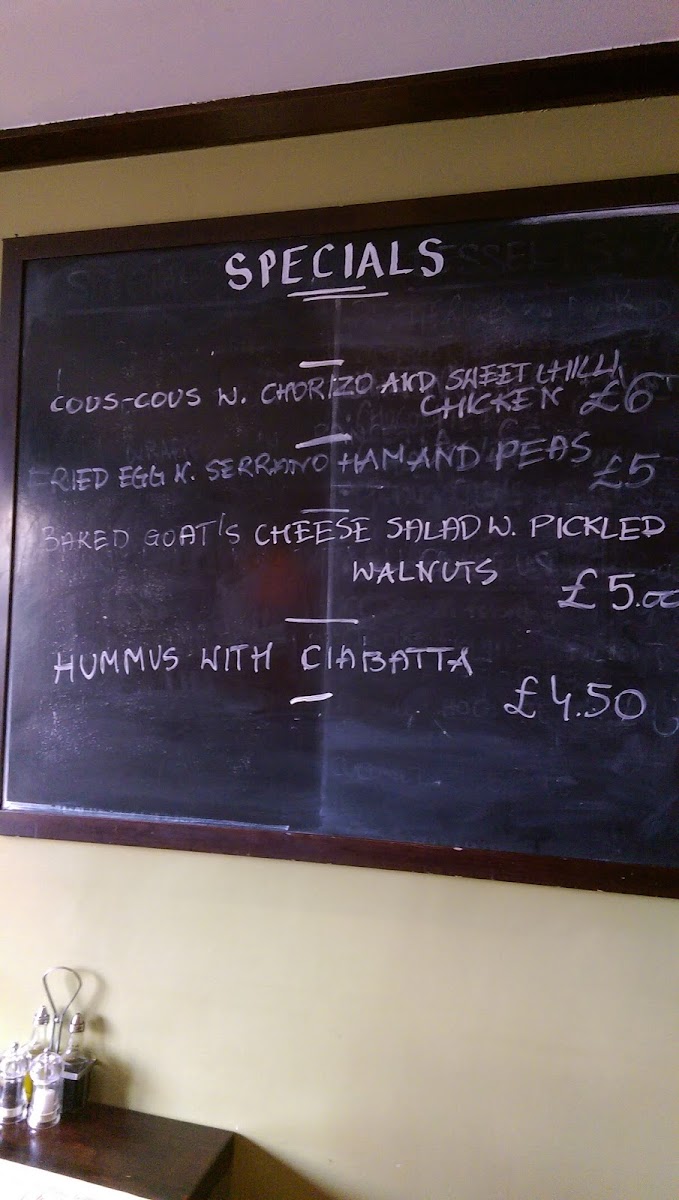 SPECIALS
COUS-COUS W. CHORIZO AND SWEET CHILLI
CHICKEN £6
FRIED EGG W. SERRANO HAM AND PEAS
£5
BAKED GOAT'S CHEESE SALAD W. PICKLED
WALNUTS
£5.00
HUMMUS WITH CIABATTA
£4.50